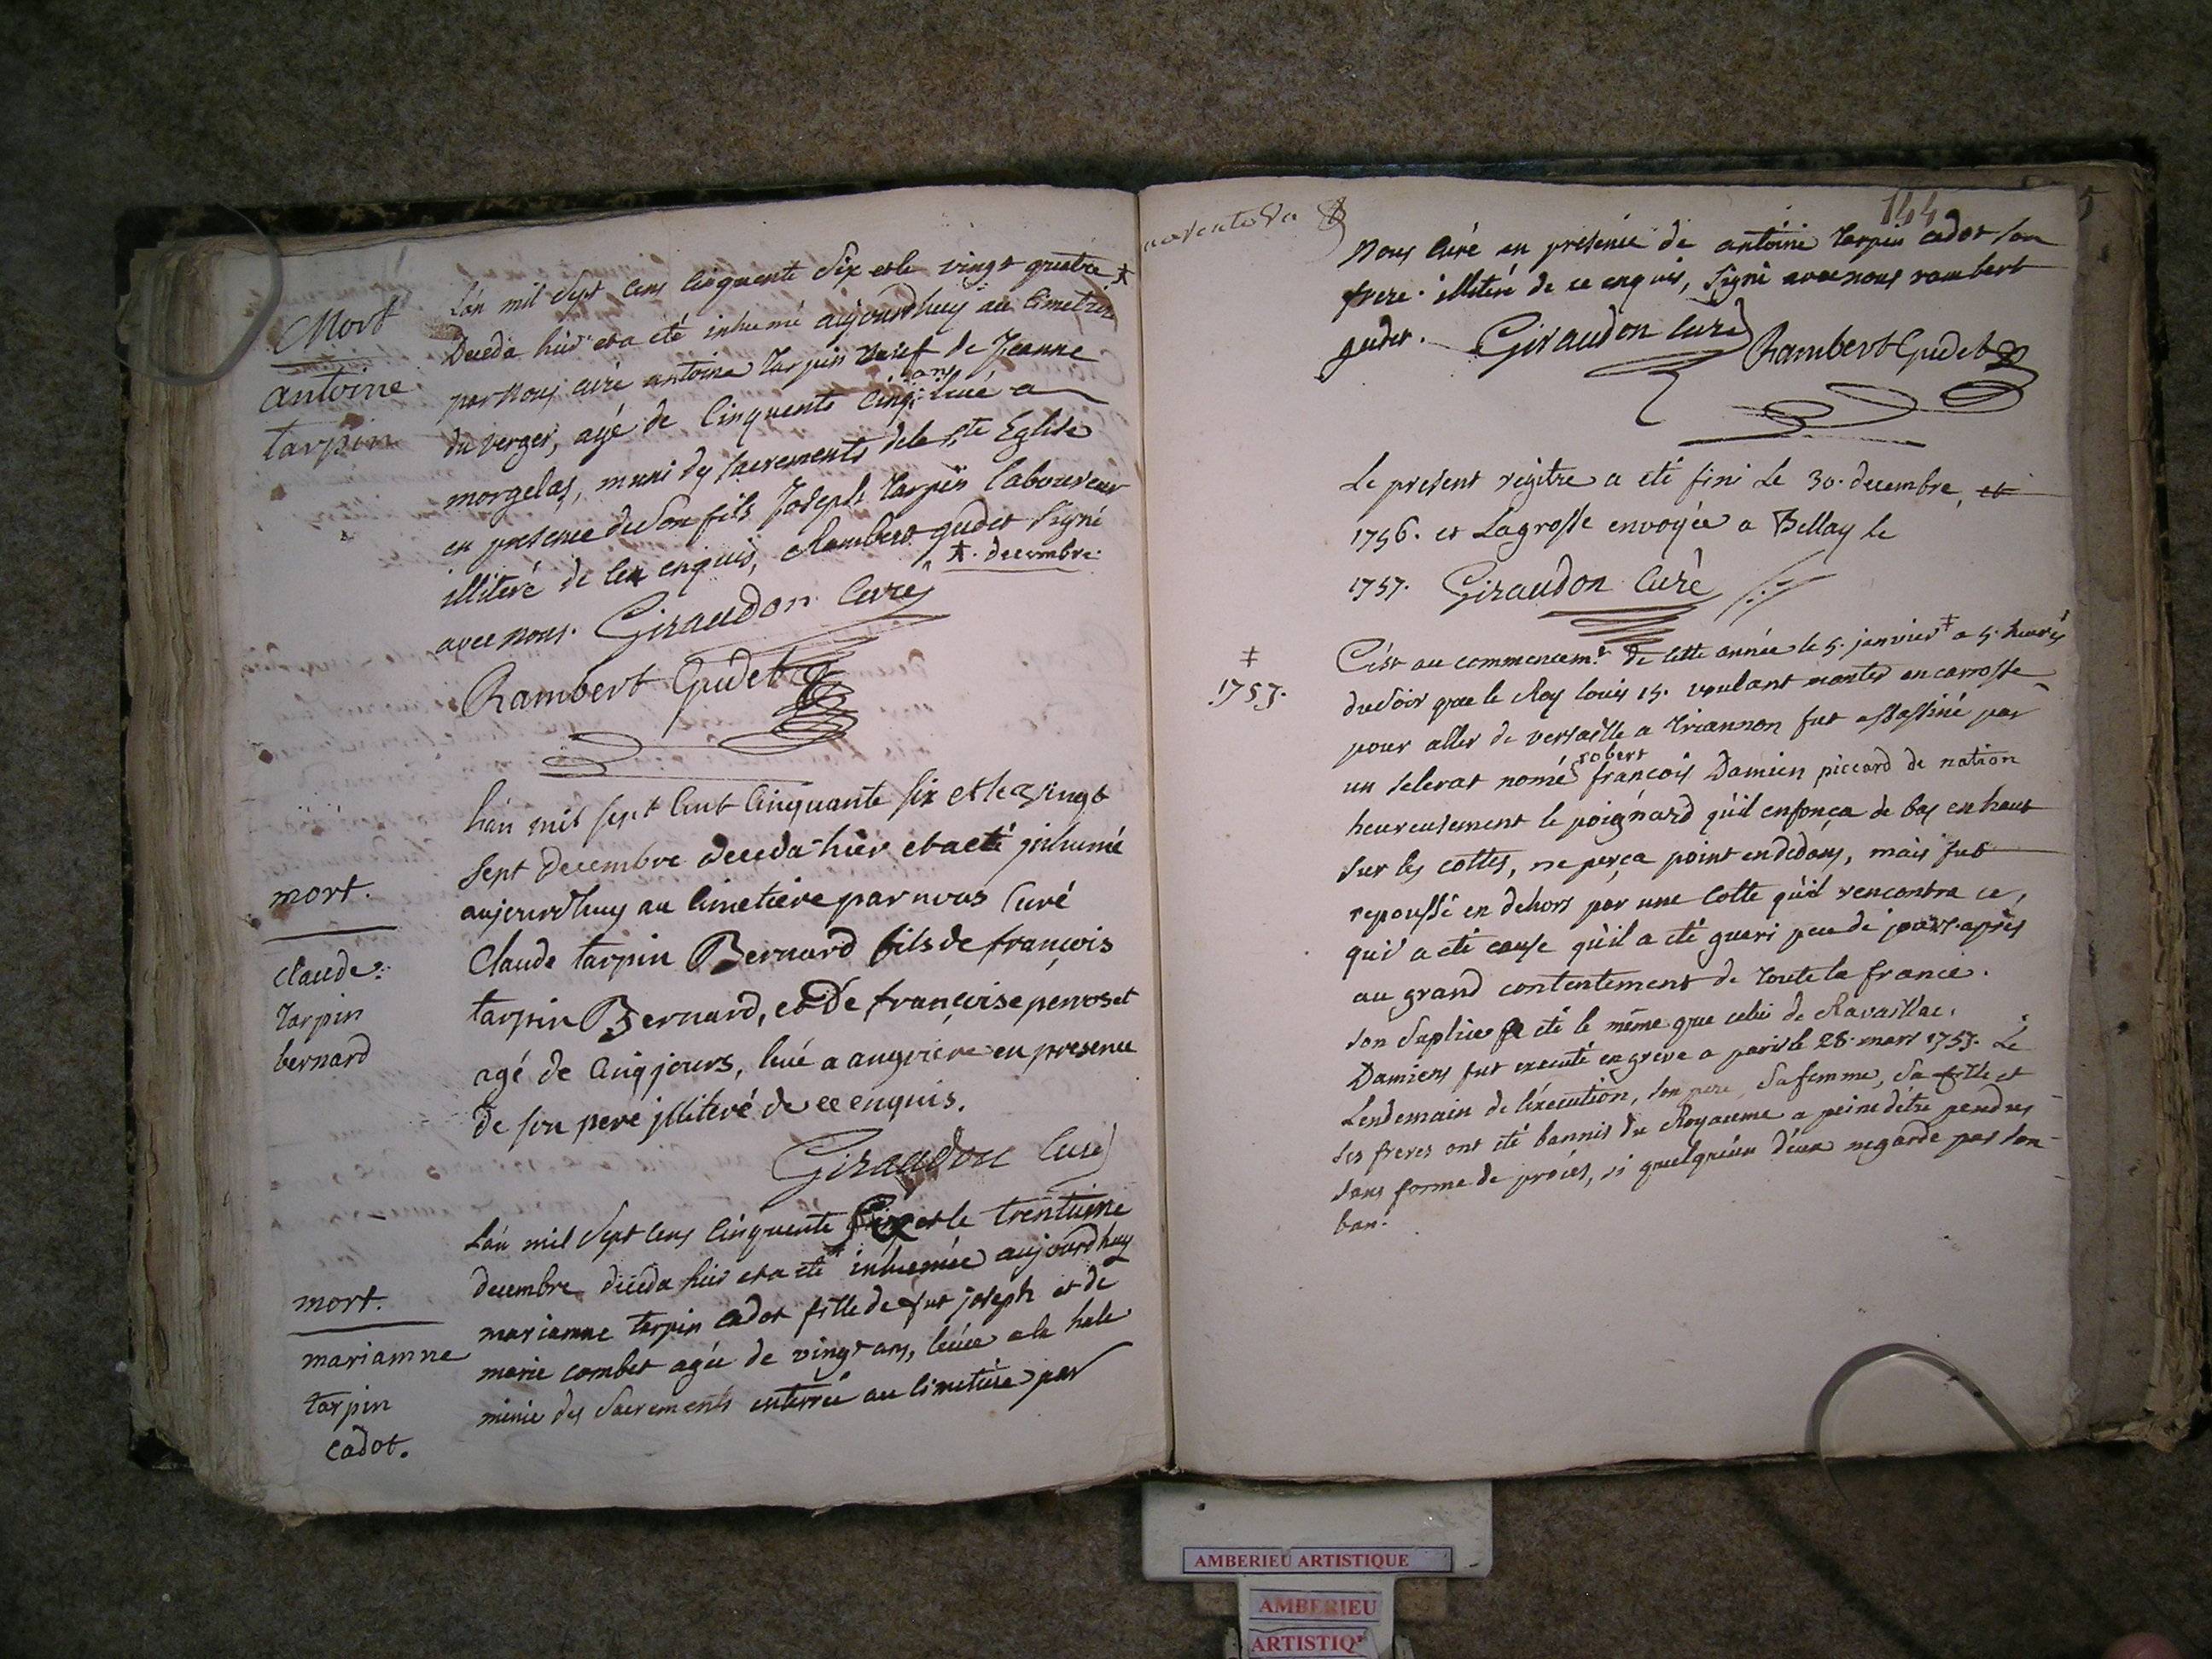 Mort
antoine
tarpin
L'an mil Sept cens Cinquente Six et le vingt quatre ⁎
Deceda hier et a été inhumé aujourdhuy au Cimetiere
par Nous curé antoine tarpin veuf de Jeanne
du verger, agé de Cinquente Cinq ans levé a
morgelas, muni des sacrements dela ste Eglise
en presence de Son fils Joseph tarpin laboureur
illiteré de ce enquis, Rambert gudet signé
avec nous. Giraudon Curé ⁎. decembre.
Rambert Gudet
mort.
claude
tarpin
bernard
L'an mil sept Cent Cinquante six et le vingt
Sept decembre deceda hier et a eté jnhumé
aujourdhuy au Cimetiere par nous Curé
Claude tarpin Bernard fils de françois
tarpin Bernard, et De françoise perroset
agé de Cinq jours, levé a angriere en presence
de son pere jlliteré de ce enquis.
Giraudon Curé
mort.
mariamne
tarpin
cadot.
L'an mil Sept Cens Cinquente Six et le trentieme
decembre déceda hier et a eté inhumée aujourdhuy
mariamne tarpin Cadot fille de fut joseph et de
marie combet agée de vingt ans, levée a la hale
munie des Sacrements enterrée au Cimetiere par
144
5
Nous Curé en presence de antoine tarpin cadot son
frere. illiteré de ce enquis, Signé avec nous rambert
gudet. Giraudon Curé Rambert Gudet
Le present regitre a eté fini le 30. decembre et
1756. et La grosse envoyée a Bellay le
1757. Giraudon Curé
‡
1757.
C'est au commencemt. de cette année le 5. janvier ‡ a 5. heures
du Soir que le Roy louis 15. voulant monter en carrosse
pour aller de versaille a triannon fut assassiné par
un selerat nomé robert françois Damien piccard de nation
heureusement le poignard qu'il enfonça de bas en haut
sur les cottes, ne perça point en dedans, mais fut
repoussé en dehors par une Cotte qu'il rencontra ce,
qui a eté cause qu'il a eté gueri peu de jours apres
au grand contentement de toute la france.
son Suplice a eté le même que celui de Ravaillac.
Damiens fut executé en greve a paris le 28. mars 1757. Le
Lendemain de l'éxecution, son pere, Sa femme, Sa fille et
Ses freres ont eté bannis du Royaume a peine d'étre pendus
sans forme de procés, si quelqu'un d'eux negarde pas son
ban.
AMBERIEU ARTISTIQUE
AMBERIEU
ARTISTIQ